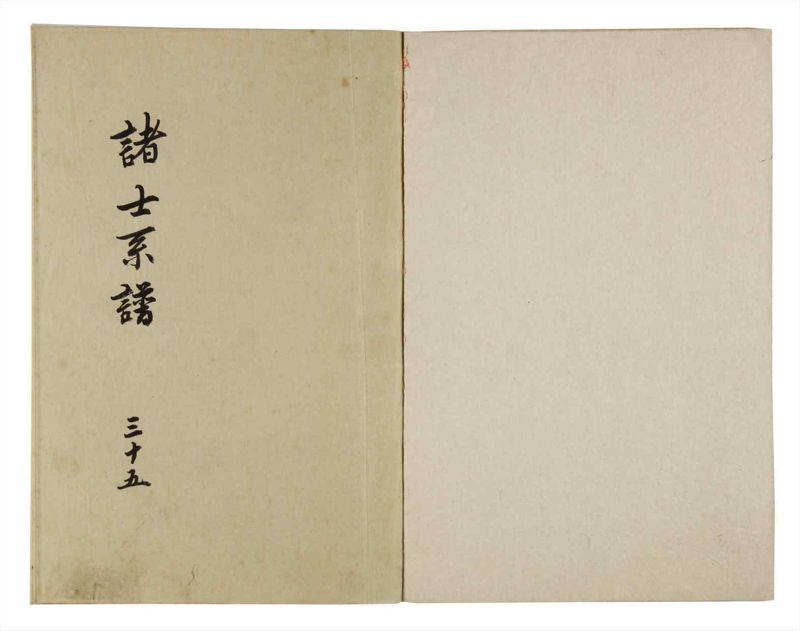 諸士系譜
三十五